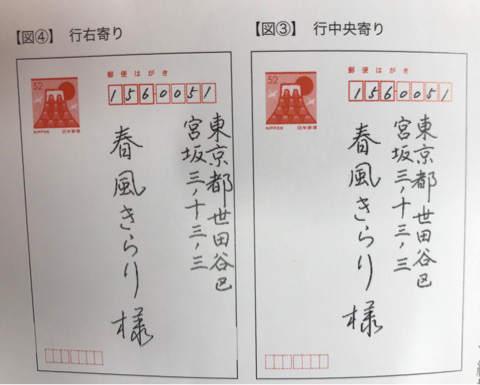 【図④】 行右寄り
52
NIPPON 日本郵便
郵便はがき
1560051
東京都世田谷区
宮坂三ノ十三ノ三
春風きらり様
【図③】 行中央寄り
52
NIPPON 日本郵便
郵便はがき
1560051
東京都世田谷区
宮坂三ノ十三ノ三
春風きらり様